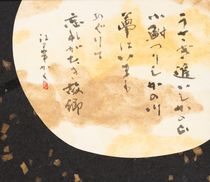 うさぎ追いしかの山
小鮒つりしかの川
夢はいまも
めぐりて
忘れがたき故郷